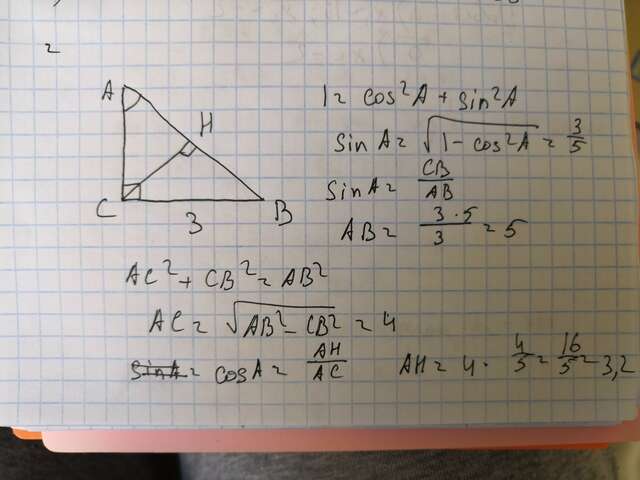 2
A
H
C
3
B
1 = cos²A + sin²A
sin A = √(1 - cos²A) = 3/5
sin A = CB/AB
AB = 3·5/3 = 5
AC² + CB² = AB²
AC = √(AB² - CB²) = 4
sin A = cos A = AH/AC
AH = 4 · 4/5 = 16/5 = 3,2